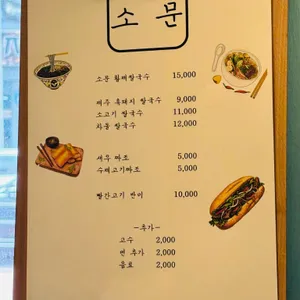 소문
소문 활배쌀국수 15,000
제주 흑돼지 쌀국수 9,000
소고기 쌀국수 11,000
차돌 쌀국수 12,000
새우 마쵸 5,000
수제고기마쵸 5,000
빨간고기 반미 10,000
-추가-
고수 2,000
면 추가 2,000
음료 2,000